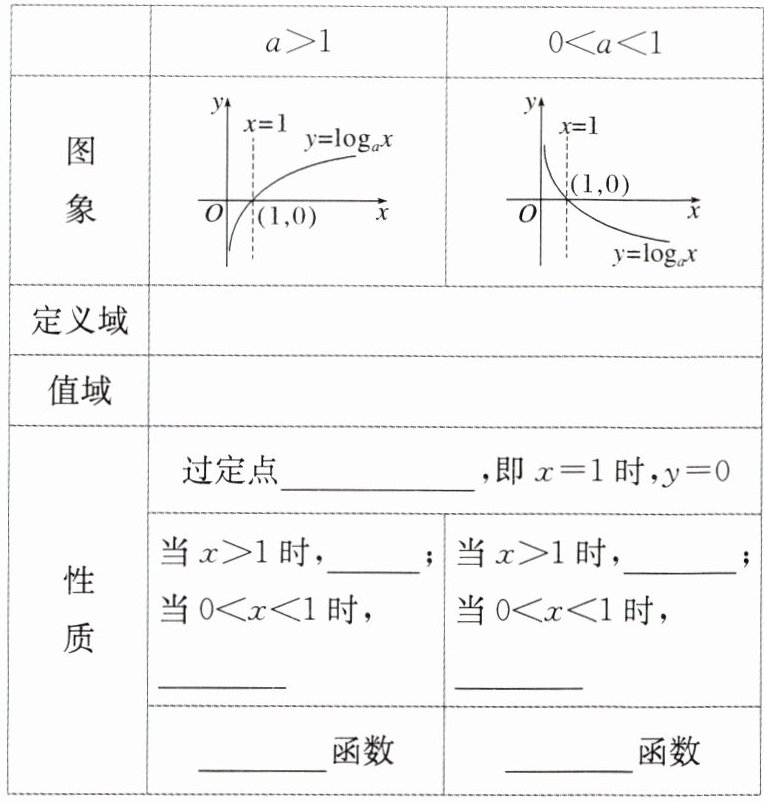 a>1
0<a<1
图象
y
x=1
y=logₐx
O
(1,0)
x
y
x=1
(1,0)
O
x
y=logₐx
定义域
值域
性质
过定点____________,即 x=1 时,y=0
当 x>1 时,______;
当 0<x<1 时,
________
当 x>1 时,_______;
当 0<x<1 时,
________
________函数
________函数